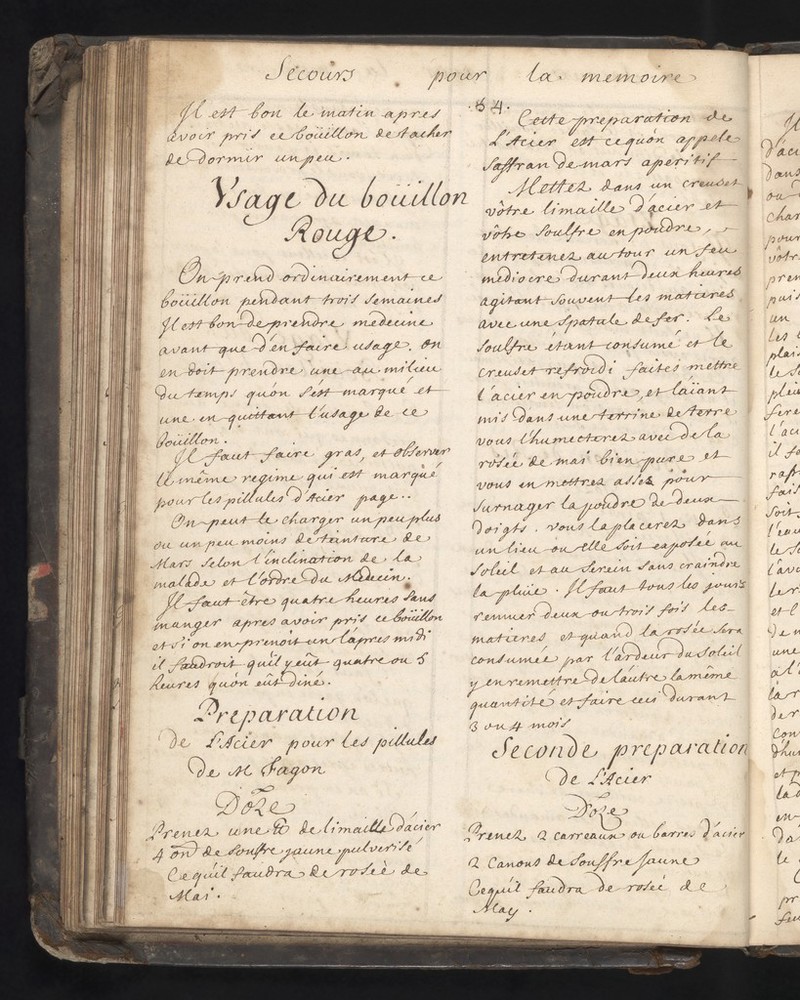 Secours pour la memoire
Il est bon le matin apres
avoir pris ce boüillon de tacher
de dormir un peu.
Vsage du boüillon
Rouge.
On prend ordinairement ce
boüillon pendant trois semaines
Il est bon de prendre medecine
avant que d'en faire usage. on
en doit prendre une au milieu
du temps qu'on s'est marqué et
une en quittant l'usage de ce
boüillon.
Il faut faire gras, et observer
le même regime qui est marqué
pour les pillules d'Acier page..
On peut le charger un peu plus
ou un peu moins de teinture de
Mars selon l'inclination de la
malade et l'ordre du Medecin.
Il faut être quatre heures sans
manger apres avoir pris ce boüillon
et si on en prenoit un l'apres midi
il faudroit qu'il y eût quatre ou 5
heures qu'on eût diné.
Preparation
de L'Acier pour les pillules
de M Fagon
Dôze
Prenez une ℔ de limaille d'acier
4 onc de souffre jaune pulverisé
Ce qu'il faudra de rosée de
Mai.
.84.
Cette preparation de
L'Acier est ce qu'on appele
Saffran de mars aperitif
Mettez dans un creuset
vôtre limaille d'acier et
vôtre soulfre en poudre,
entretenez autour un feu
mediocre durant deux heures
agitant souvent les matieres
avec une spatule de fer. Le
soulfre étant consumé et le
creuset refroidi faites mettre
l'acier en poudre, et l'aïant
mis dans une terrine de terre
vous l'humecterez avec de la
rosée de mai bien pure et
vous en mettrez assez pour
surnager la poudre de deux
doigts. vous la placerez dans
un lieu ou elle soit exposée au
soleil et au serein sans craindre
la pluie. Il faut tous les jours
remuer deux ou trois fois les
matieres et quand la rosée sera
consumée par l'ardeur du soleil
y en remettre de l'autre la même
quantité et faire ceci durant
3 ou 4 mois
Seconde preparation
de L'Acier
Dôze
Prenez 2 carreaux ou barres d'acier
2 Canons de souffre jaune
Ce qu'il faudra de rosée de
May.